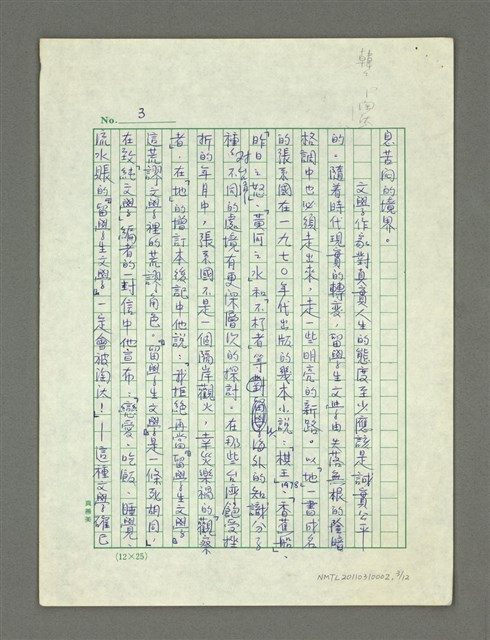 No. 3
息苦悶的境界。
文學作家對真實人生的態度至少應該是誠實公平
的。隨着時代現實的轉變,留學生文學由失落無根的陰暗
格調中也必須走出來,走一些明亮的新路。以「地」一書成名
的張系國在一九七〇年代出版的幾本小說:「棋王」、「香蕉船」、
1978
「昨日之怒」、「黃河之水」和「不朽者」等對海外的知識分子
種種不同的處境有更深層次的探討。在那些台灣飽受挫
對台灣
折的年月中,張系國不是一個隔岸觀火,幸災樂禍的觀察
者,在「地」的增訂本後記中他說:「我拒絕再當『留學生文學』
這荒謬文學裡的荒謬角色。『留學生文學』是一條死胡同。」
在致純文學編者的一封信中他宣布:「戀愛、吃飯、睡覺
流水賬的『留學生文學』一定會被淘汰!」——這種文學確已
(12×25)
NMTL20110310002, 3/12